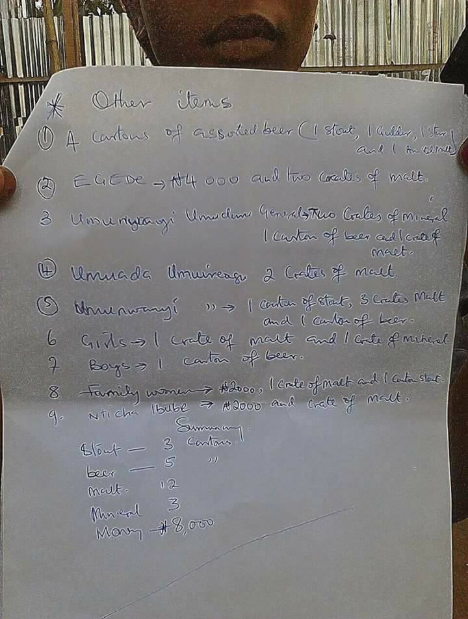 * Other items
① A cartons of assorted beer (1 stout, 1 Gulder, 1 star
and 1
② EGEDE → ₦4 000 and two crates of malt.
3 Umunwanyi Umudim General → Two Crates of mineral
1 Carton of beer and 1 crate of
malt.
④ Umuada Umuireagu 2 Crates of malt
⑤ Umunwanyi ,, → 1 carton of stout, 3 Crates Malt
and 1 carton of beer.
6 Girls → 1 Crate of malt and 1 Crate of Mineral
7 Boys → 1 carton of beer.
8 Family women → ₦2000, 1 Crate of malt and 1 carton stout.
9. Ibube → ₦2000 and Crate of malt.
Summary
Stout — 3 Cartons
beer — 5 ,,
malt - 12
Mineral 3
Money → ₦8,000